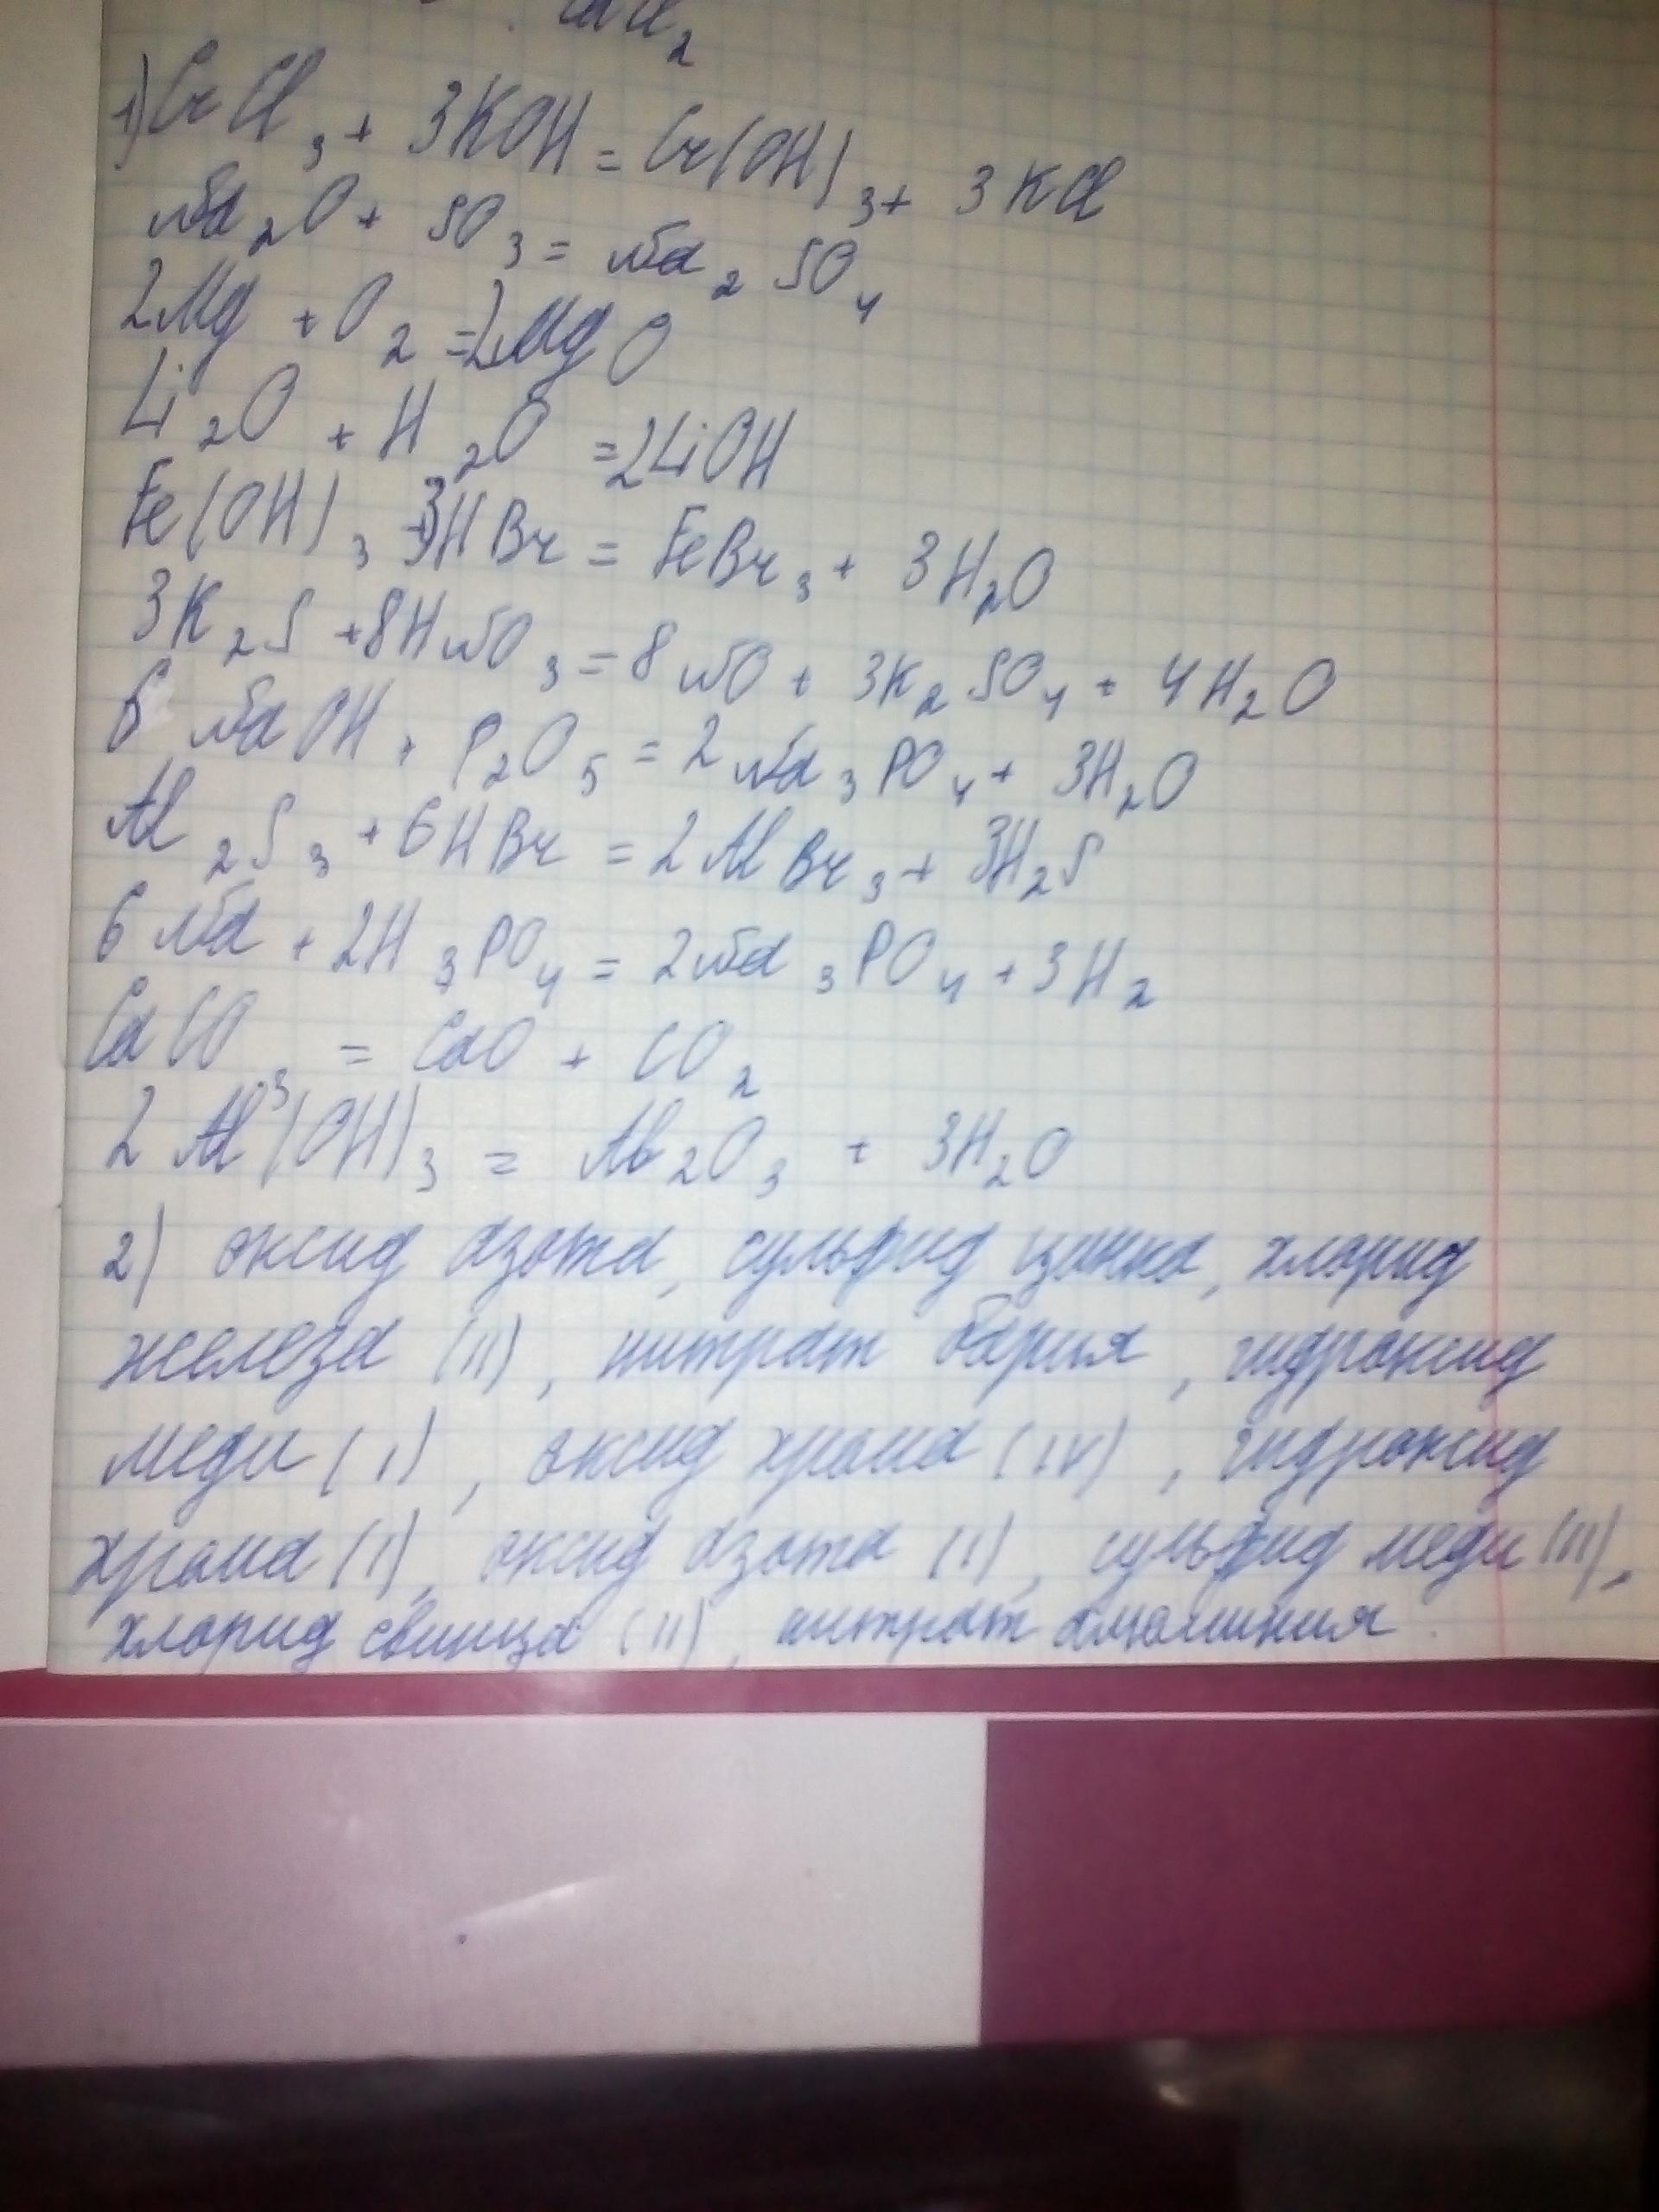 CaCl2
1) CrCl3 + 3KOH = Cr(OH)3 + 3KCl
Na2O + SO3 = Na2SO4
2Mg + O2 = 2MgO
Li2O + H2O = 2LiOH
Fe(OH)3 + 3HBr = FeBr3 + 3H2O
3K2S + 8HNO3 = 8NO + 3K2SO4 + 4H2O
6NaOH + P2O5 = 2Na3PO4 + 3H2O
Al2S3 + 6HBr = 2AlBr3 + 3H2S
6Na + 2H3PO4 = 2Na3PO4 + 3H2
CaCO3 = CaO + CO2
2Al(OH)3 = Al2O3 + 3H2O
2) оксид азота, сульфид цинка, хлорид
железа (II), нитрат бария, гидроксид
меди (I), оксид хрома (IV), гидроксид
хрома (I), оксид азота (I), сульфид меди (III),
хлорид свинца (II), нитрат алюминия.